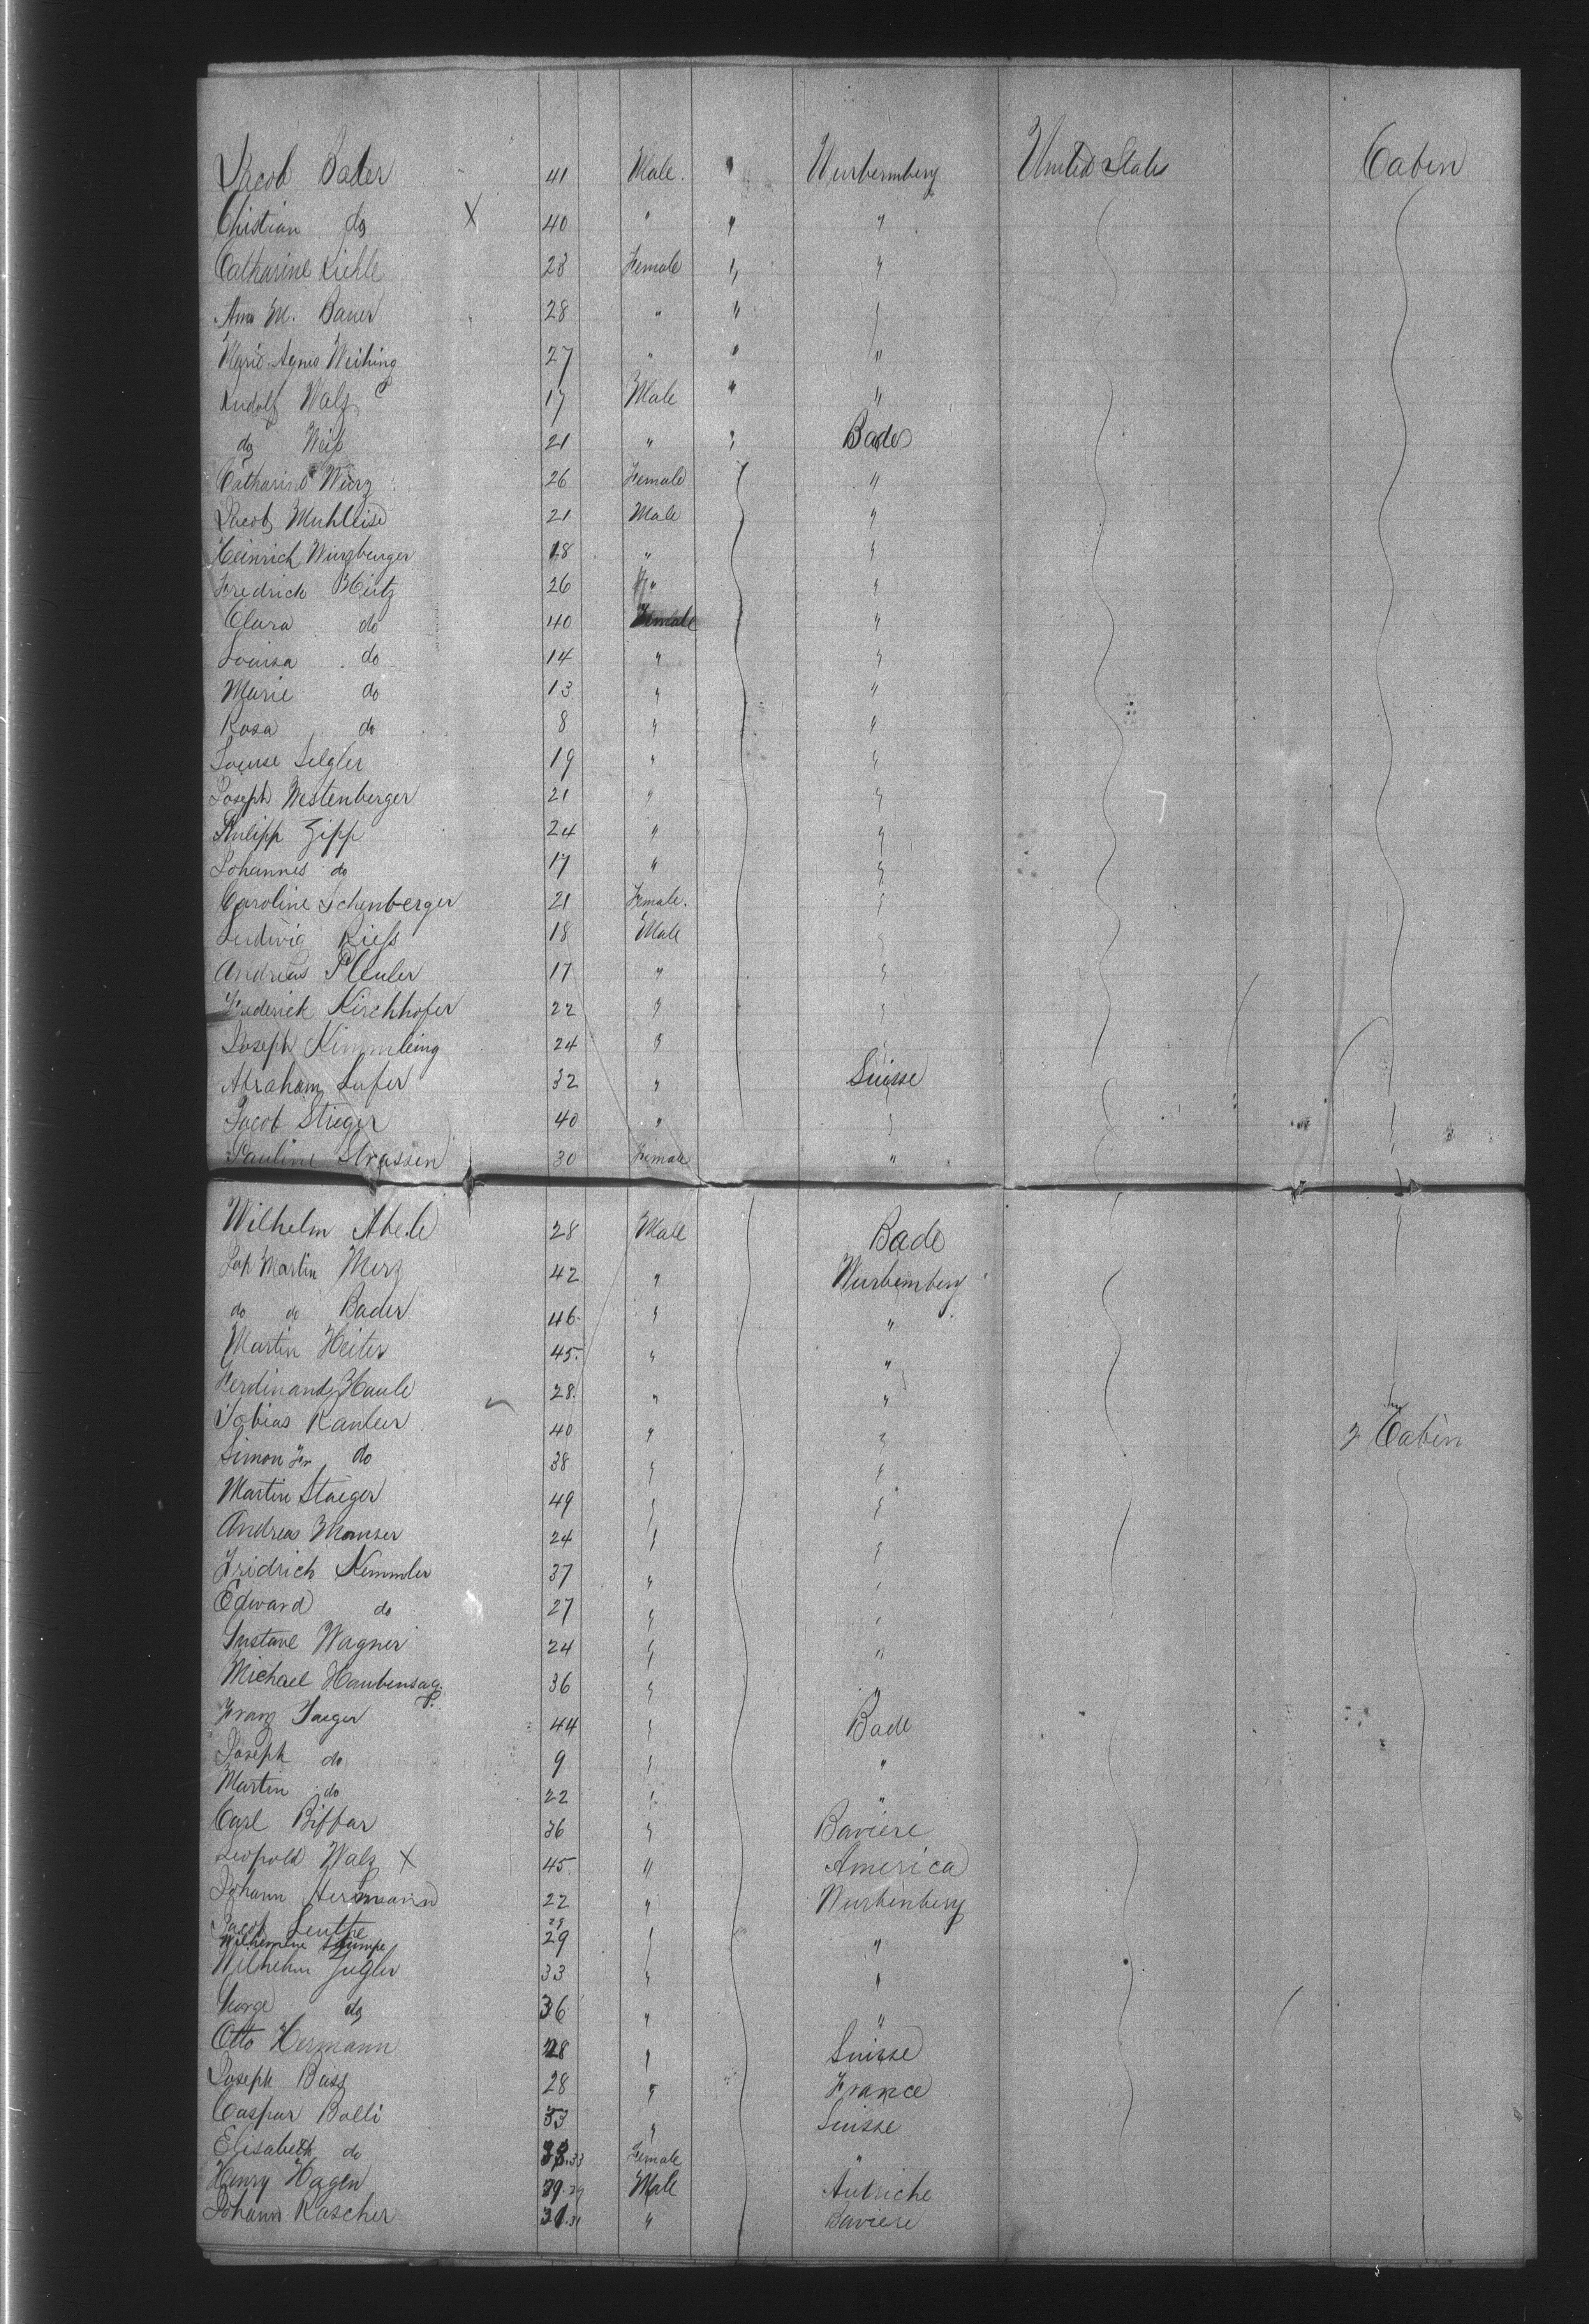 Jacob Bader 41 Male. " Wurbemberg United States Cabin
Christian do X 40 " " "
Catharine Kiehle 28 Female " "
Ana M. Bauer 28 " "
Marie Agnes Weihing 27 " " "
Rudolf Walz 17 Male " "
do Weiß 21 " " Bade
Catharine Wurz 26 Female "
Jacob Muhleise 21 Male "
Heinrich Wurzburger 18 " "
Fredrick Heitz 26 " "
Clara do 40 Female "
Louisa do 14 " "
Marie do 13 " "
Rosa do 8 " "
Louise Selgler 19 " "
Joseph Westenberger 21 " "
Philipp Zipp 24 " "
Johannes do 17 " "
Caroline Schenberger 21 Female.
Ludwig Rieß 18 Male "
Andreas Pleuler 17 " "
Frederick Kirchhofer 22 " "
Joseph Kimmleing 24 "
Abraham Sufer 32 " Suisse
Jacob Stieger 40 " "
Pauline Strassen 30 Female "
Wilhelm Abele 28 Male Bade
Joh Martin Merz 42 " Wurbemberg
do do Bader 46 " "
Martin Heiter 45. " "
Ferdinand Haule 28. " "
Tobias Kanteer 40 " " 2 Cabin
Simon Fr do 38 " "
Martin Staeger 49 " "
Andreas Mauser 24 " "
Fridrich Kemmler 37 "
Edward do 27 "
Gustave Wagner 24 " "
Michael Haubensag. 36 " "
Franz Jaeger 44 " Bade
Joseph do 9 " "
Martin do 22 " "
Carl Biffar 36 " Baviere
Leopold Walz X 45. " America
Johann Hermann 22 " Wurbenberg
Jacob Leuthe 29
Wilhemine Stumpe 29 "
Wilhelm Zugler 33 " "
George do 36 " "
Otto Hermann 28 " Suisse
Joseph Buss 28 " France
Caspar Bolli 53 " Suisse
Elisabeth do 33 Female "
Henry Hagen 39 Male Autriche
Johann Rascher 31 " Baviere